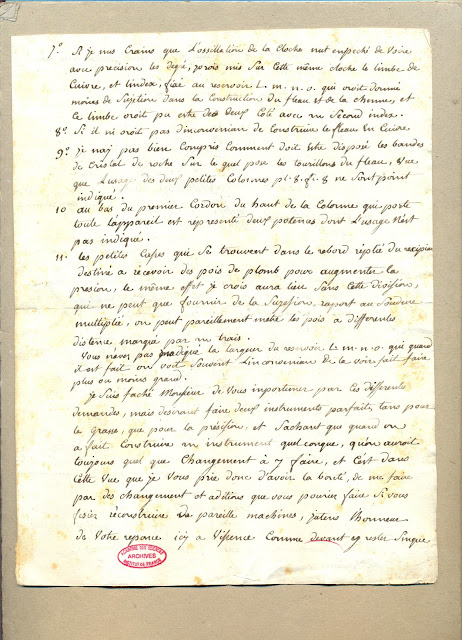 7.º Si je nus Crains que L'ossilation de la Cloche nut empeché de Voire
avec précision les degré, j'orois mis sur Cette même cloche le limbe de
Cuivre, et lindex, fixé au reservoir L. m. n. o. qui oroit donné
moins de Sujetion dans la Construction du fleau et de la chenne, et
Ce limbe oroit pu estre des deux Côté avec un Second index.
8º. Si il ni oroit pas d'inconvenian de Construire le fleau En Cuivre
9º je nay pas bien Compris Comment doit Estre disposé les bandes
de Cristal de roche Sur le quel pose les tourillons du fleau, Vue
que L'usage des deux petites Colonnes pl. 8. fi. 8 ne Sont point
indiqué.
10 au bas du premier Cordon du haut de la Colonne qui porte
toute L'appareil est représenté deux potences dont L'usage N'est
pas indiqué.
11. les petites Cases que Se trouvent dans le rebord réplié du récipian
destiné a récevoir des pois de plomb pour augmenter la
presion, le même effet je crois aura lieu Sans Cette division,
qui ne peut que fournir de la Sujesion, raport au Soudure
multiplié, on peut pareillement metre les pois a differentes
distence marqué par un trais.
Vous n'avez pas indiqué la largeur du reservoir L. m. n. o. qui quand
il est fait on voit Souvent L'inconvenian de la voir fait faire
plus ou moins grand.
je Suis faché Monsieur de Vous importuner par Ces différents
demandes, mais desirant faire deux instruments parfait, tans pour
le Grasse, que pour la présition, et Sachant que quand on
a fait Construire un instrument quel conque, qu'on auroit
toujours quel que Changement à y faire, et C'est dans
Cette Vue que je Vous prie donc d'avoir la bonté, de me faire
par des changement et aditions que vous pouriez faire Si vous
fesiez réconstruire de pareille machines, j'atens L'honneur
de Votre reponce icy a Comme devant y rester
ACADÉMIE DES SCIENCES
ARCHIVES
INSTITUT DE FRANCE